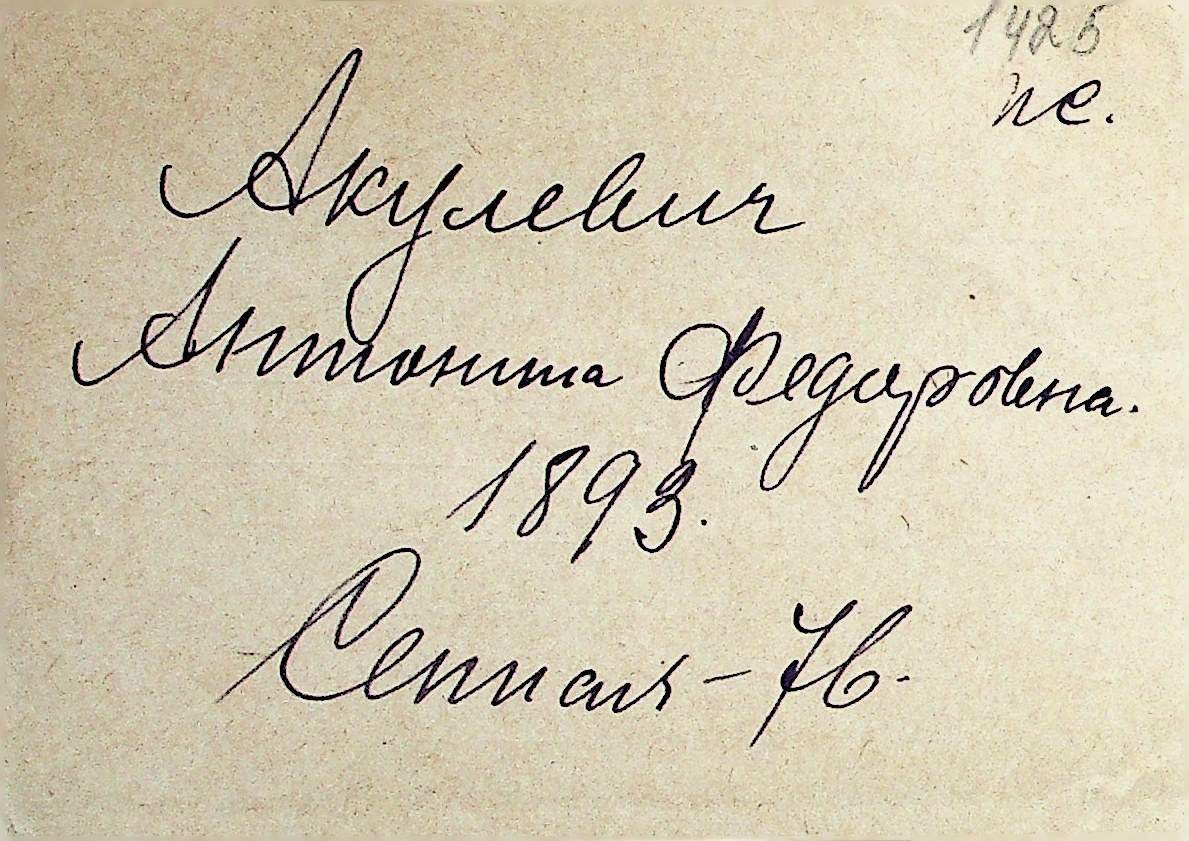 1425
пс.
Акулевич
Антонина Федоровна.
1893.
Сенная - 7б.